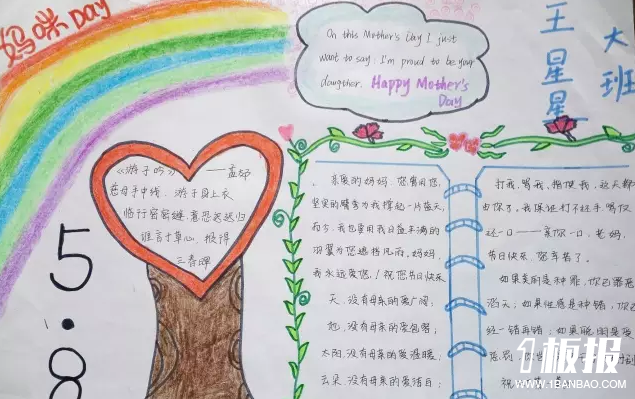 妈咪DAY
On this Mother's Day I just
want to say: I'm proud to be your
daugther. Happy Mother's
Day
王星星
大班
《游子吟》——孟郊
慈母手中线 游子身上衣
临行密密缝 意恐迟迟归
谁言寸草心 报得
三春晖
5.8
亲爱的妈妈，您曾用您
坚实的臂弯为我撑起一片蓝天，
而今，我也要用我日益丰满的
羽翼为您遮挡风雨，妈妈，
我永远爱您！祝您节日快乐
天，没有母亲的爱广阔；
地，没有母亲的爱包容；
太阳，没有母亲的爱温暖；
云朵，没有母亲的爱洁白；
打我，骂我，指使我，这天都
由你了，我保证打不还手骂你
还一口——亲你一口，老妈，
节日快乐，您辛苦了。
如果美丽是种罪，你已罪恶
滔天；如果性感是种错，你已
经一错再错；如果聪明是
1板报
WWW.1BANBAO.COM